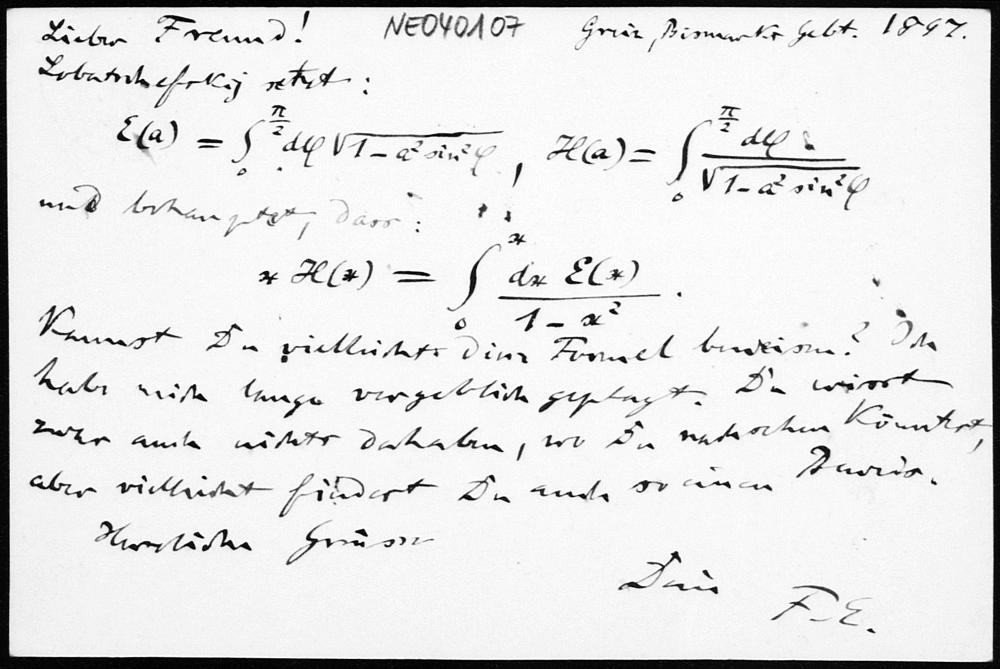 Lieber Freund! NE040107 Grün, Bismarckr Gebt. 1897.
Lobatschefskij setzt:
E(a) = ∫₀^{π/2} dφ √(1-a² sin²φ), H(a) = ∫₀^{π/2} dφ / √(1-a² sin²φ)
und behauptet, dass:
x H(x) = ∫₀^x dx E(x) / (1-x²).
Kannst Du vielleicht diese Formel beweisen? Ich
habe mich lange vergeblich geplagt. Du wirst
zwar auch nichts dahaben, wo Du nachsehen könntest,
aber vielleicht findest Du auch so einen Beweis.
Herzliche Grüsse
Dein
F.E.